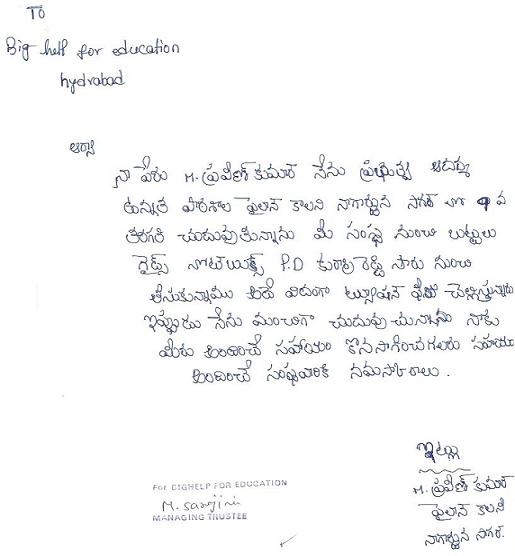 To
Big help for education
hydrabad
నా పేరు M. ప్రవీణ్ కుమార్ నేను ప్రభుత్వ ఆదర్శ
ఉన్నత పాఠశాల పైలాన్ కాలని నాగార్జున సాగర్ లో 9 వ
తరగతి చదువుకున్నాను మీ సంస్థ నుంచి బుట్టులు
గైడ్స్ నోట్‌బుక్స్ P.D సారు నుంచి
తీసుకున్నాము ట్యూషన్ ఫీజు చెల్లిస్తున్నారు
ఇప్పుడు నేను మంచిగా చదువు చున్నాను నాకు
మీరు అందించే సహాయం కొనసాగించగలరు సహాయం
అందించే సంస్థవారికి నమస్కారాలు.
ఇట్లు
M. ప్రవీణ్ కుమార్
పైలాన్ కాలని
నాగార్జున సాగర్.
For BIGHELP FOR EDUCATION
M. Sarojini
MANAGING TRUSTEE